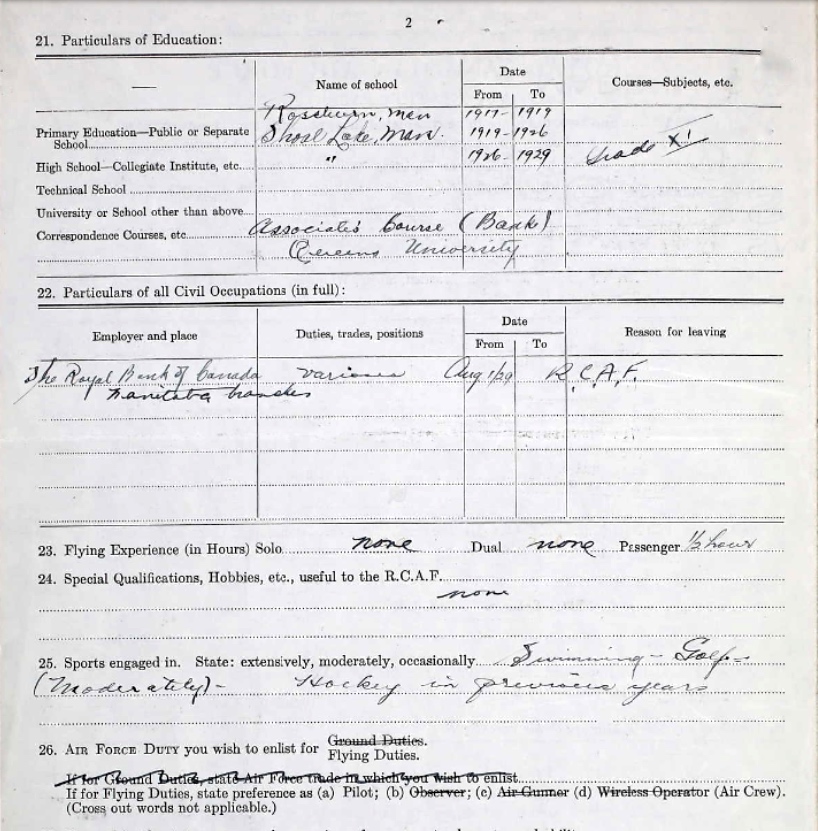 2
21. Particulars of Education:
Name of school
Date
From To
Courses—Subjects, etc.
Rossburn, Man 1917- 1919
Primary Education—Public or Separate
School Shoal Lake, Man. 1919-1926
High School—Collegiate Institute, etc. " 1926-1929 Grade XI
Technical School
University or School other than above
Correspondence Courses, etc. Associates Course (Bank)
Queens University
22. Particulars of all Civil Occupations (in full):
Employer and place
Duties, trades, positions
Date
From To
Reason for leaving
The Royal Bank of Canada various Aug 1/29 R.C.A.F.
Manitoba branches
23. Flying Experience (in Hours) Solo none Dual none Passenger 1/2 hour
24. Special Qualifications, Hobbies, etc., useful to the R.C.A.F.
none
25. Sports engaged in. State: extensively, moderately, occasionally Swimming - Golf -
(Moderately) - Hockey in previous years
26. AIR FORCE DUTY you wish to enlist for Ground Duties.
Flying Duties.
If for Ground Duties, state Air Force trade in which you wish to enlist
If for Flying Duties, state preference as (a) Pilot; (b) Observer; (c) Air Gunner (d) Wireless Operator (Air Crew).
(Cross out words not applicable.)